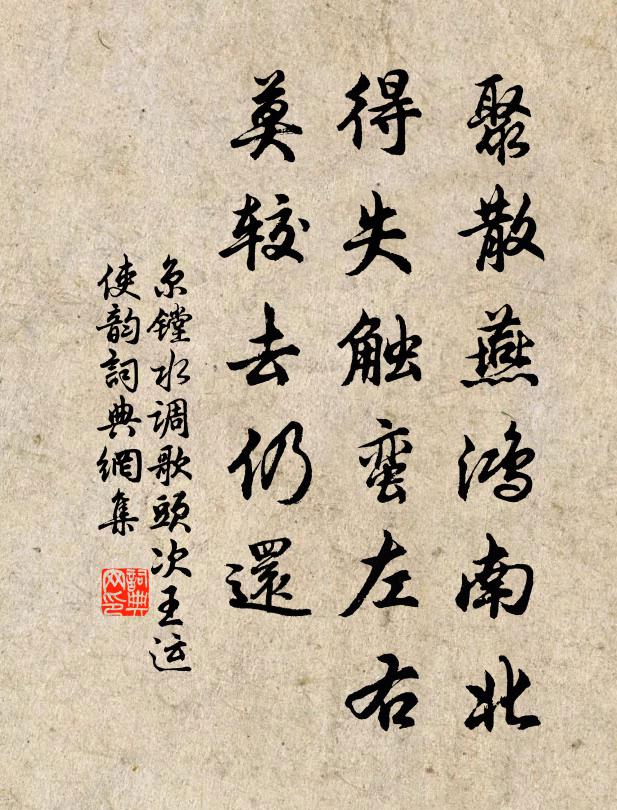 聚散燕鸿南北
得失触蛮左右
莫较去仍還
京镗水调歌頭次王运
使韵詞典網集
詞典
网印